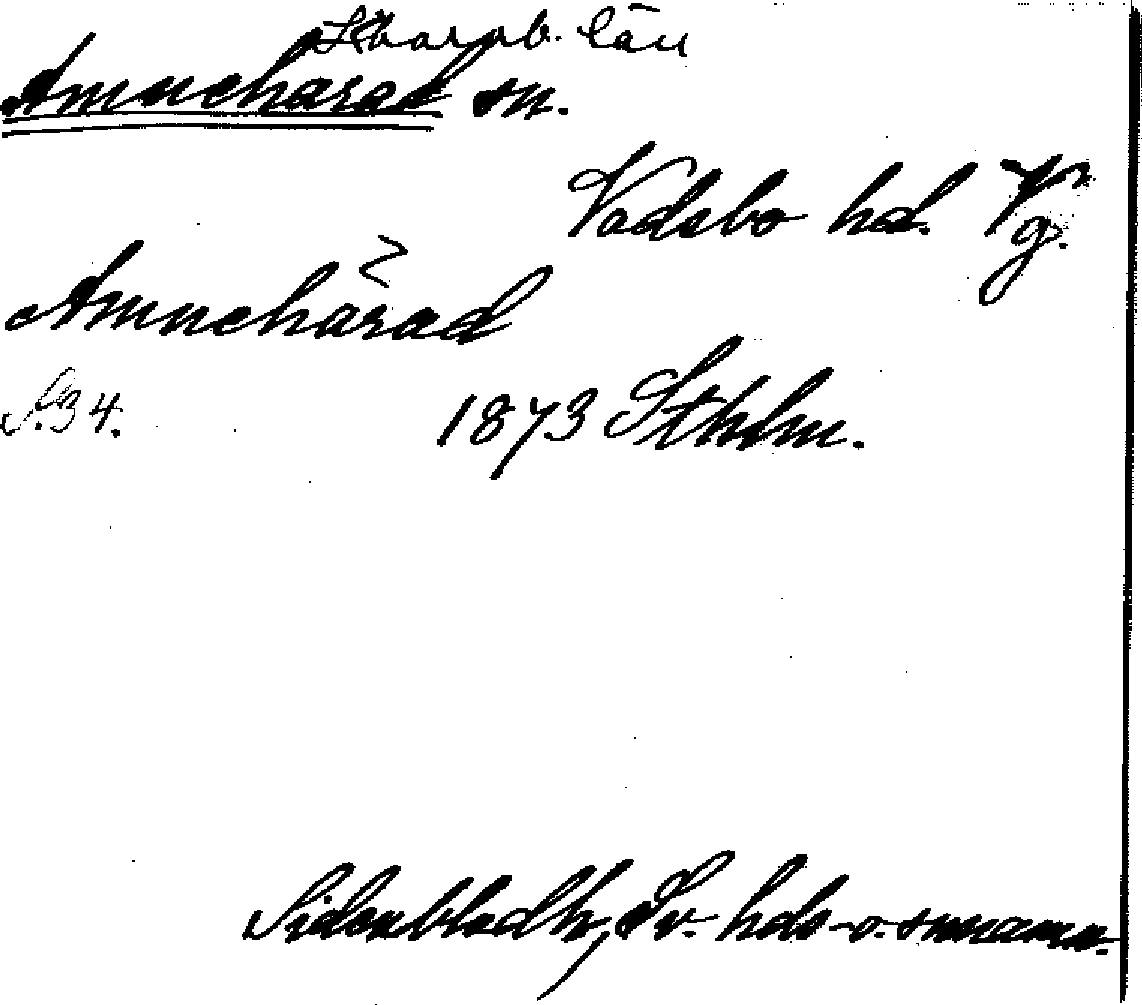 Skarab. län
Amnehärad sn.
Vadsbo hd. Vg.
Amnehärad
S. 34. 1873 Sthlm.
Sidenbladh, Sv. hds- o. snnamn.